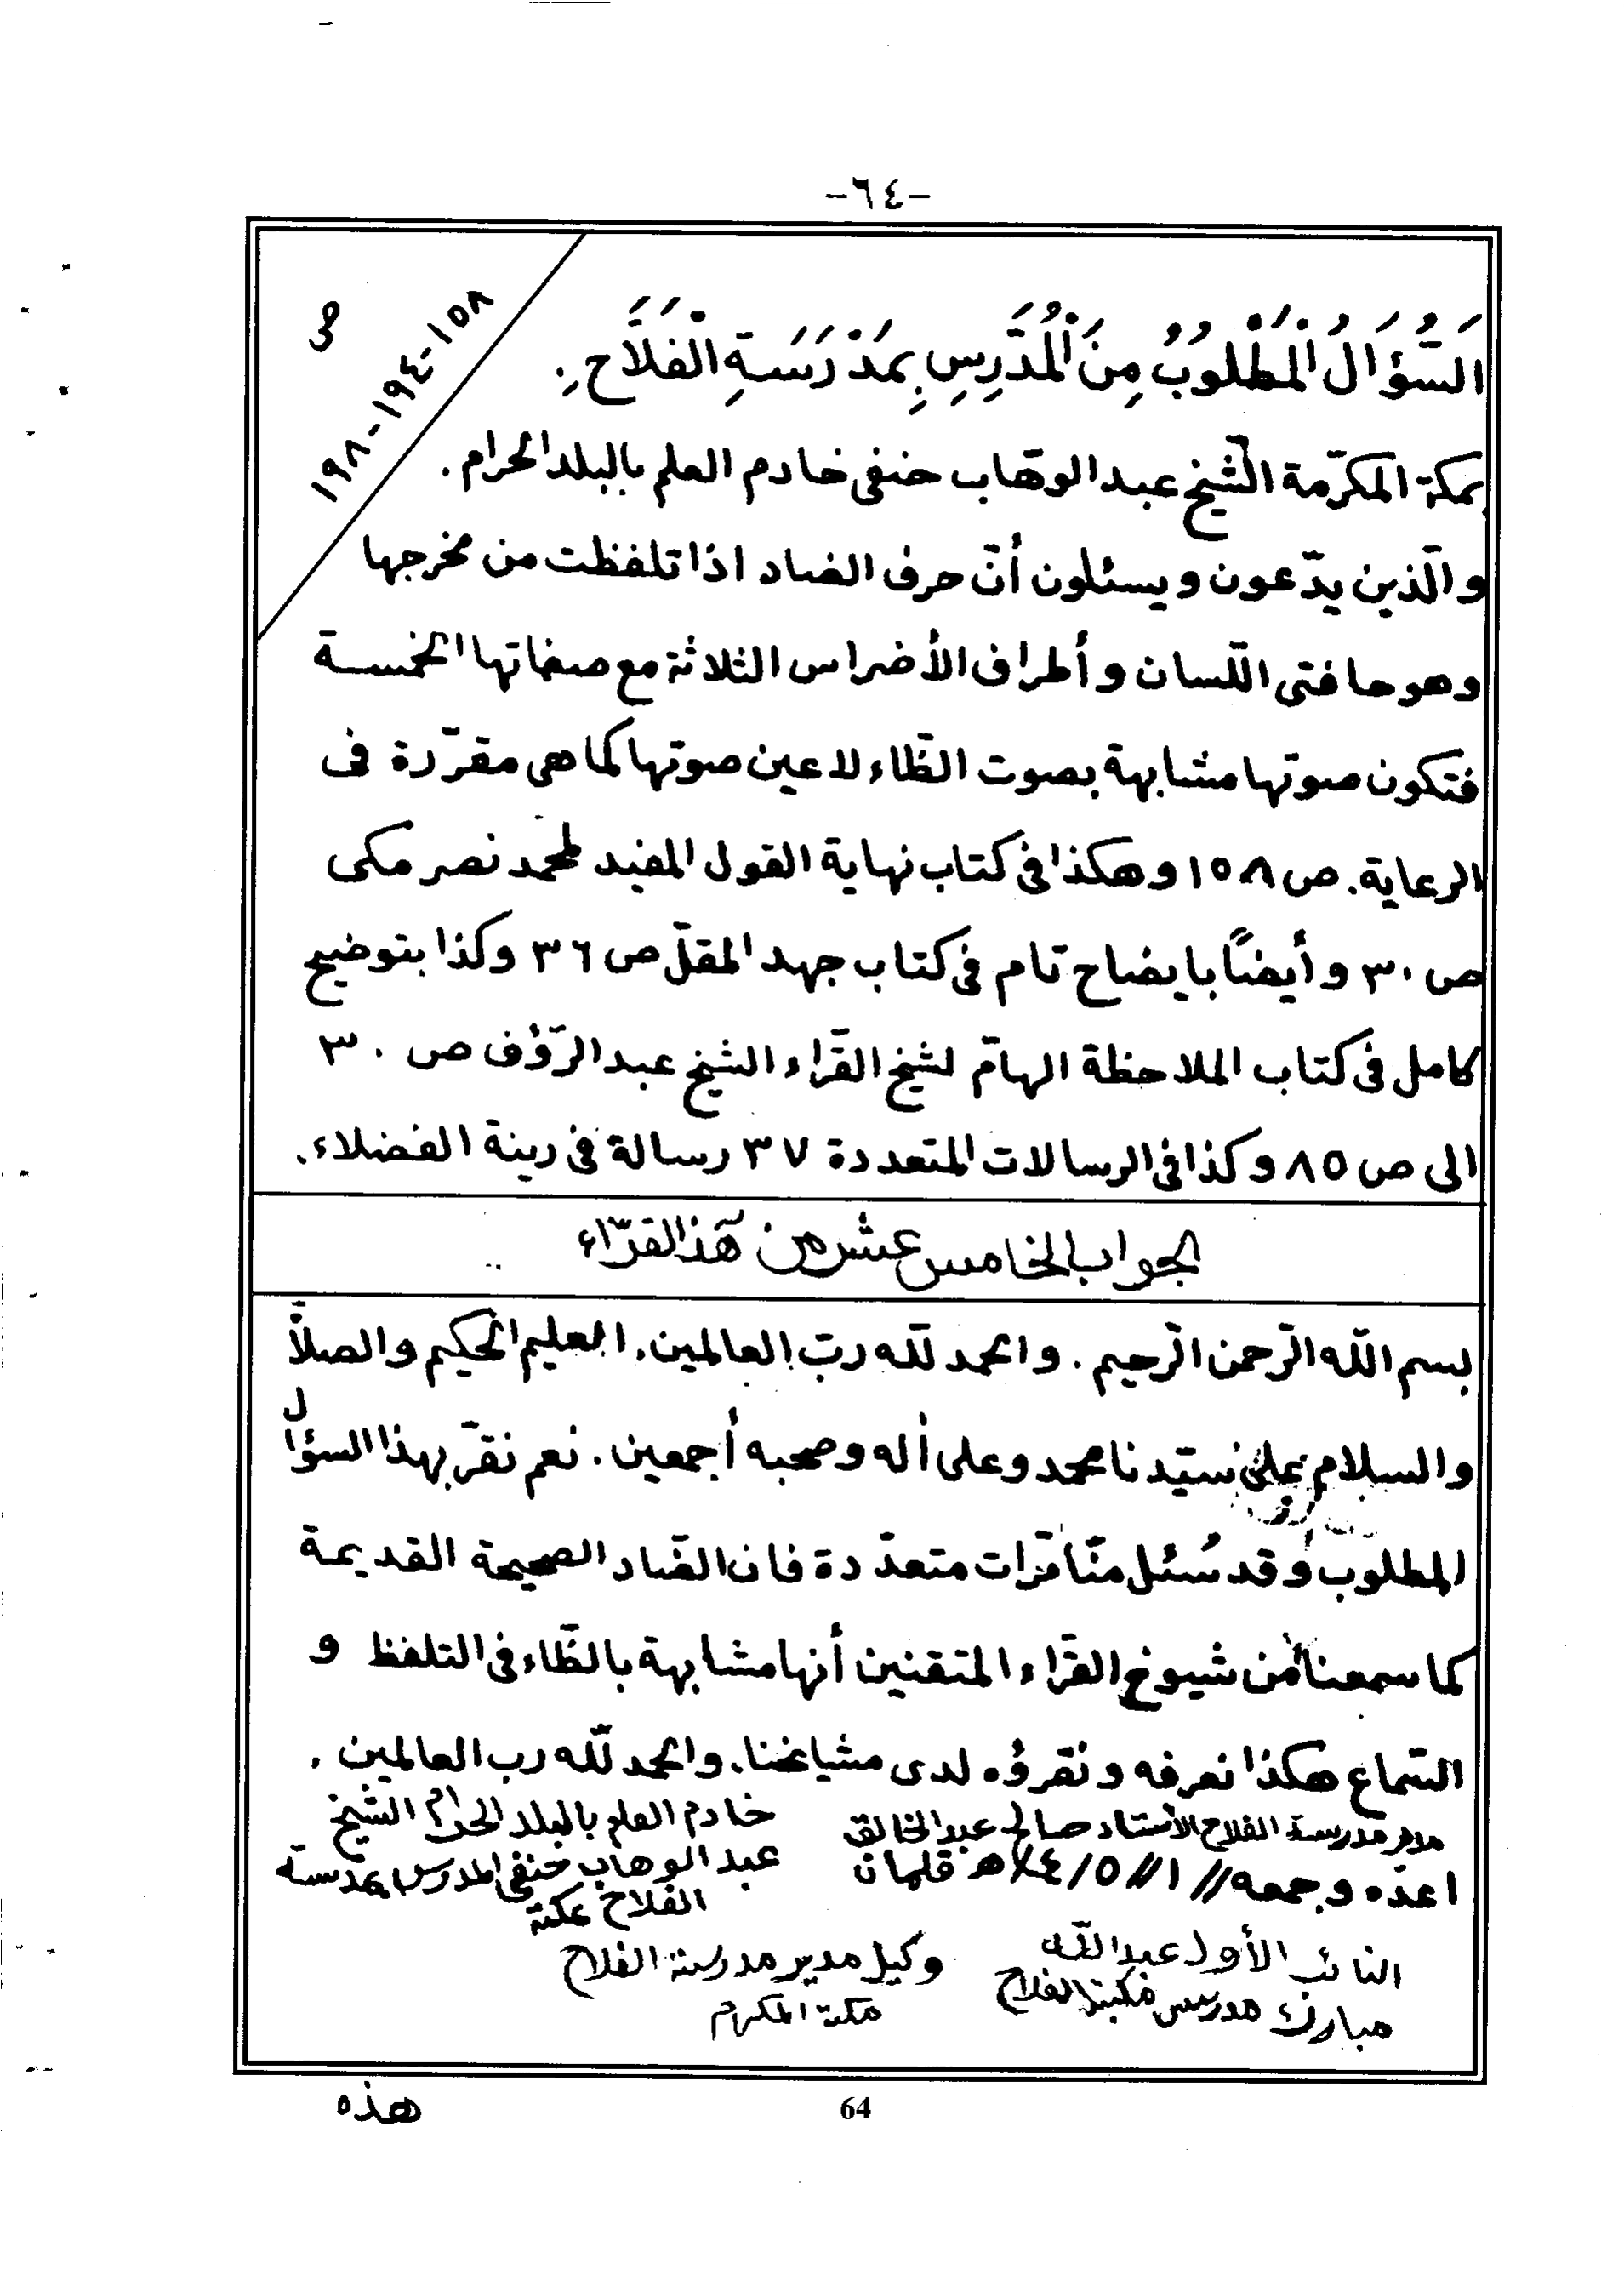 -٦٤-
ص
١٥٨-١٩٤-١٩٨
اَلسُّؤَالُ الْمَطْلُوبُ مِنَ الْمُدَرِسِ بِمَدْرَسَةِ الْفَلَاحِ.
بمكة المكرّمة الشيخ عبد الوهّاب حنفى خادم العلم بالبلد الحرام.
والّذين يدّعون ويسئلون أنّ حرف الضاد اذا تلفظت من مخرجها
وهو حافتى اللّسان وأطراف الأضراس الثلاثة مع صفاتها الخمسة
فتكون صوتها مشابهة بصوت الظّاء لا عين صوتها كما هى مقرّرة فى
الرعاية. ص ١٥٨ وهكذا فى كتاب نهاية القول المفيد لمحمد نصر مكى
ص ٣٠ وأيضًا بايضاح تام فى كتاب جهد المقلّ ص ٣٦ وكذا بتوضيح
كامل فى كتاب الملاحظة الهامّ لشيخ القرّاء الشيخ عبد الرّؤف ص ٣٠
الى ص ٨٥ وكذا فى الرسالات المتعددة ٣٧ رسالة فى رينة الفضلاء.
الجواب الخامس عشر من هٓذ القرّاء
بسم اللّه الرّحمن الرّحيم. والحمد للّه ربّ العالمين. العليم الحكيم والصلاّ
والسلام على سيّدنا محمد وعلى أله وصحبه أجمعين. نعم نقرّ بهذا السؤال
المطلوب وقد سُئل منّا مرّات متعدّدة فان الضّاد الصحيحة القديمة
كما سمعنا من شيوخ القرّاء المتقنين أنها مشابهة بالظّاء فى التلفظ و
السّماع هكذا نعرفه ونقرؤه لدى مشايخنا. والحمد للّه رب العالمين.
مدير مدرسة الفلاح الأستاد صالح عبد الخالق
اعدّه وجمعه // ١ // ٥ / ١٤ هـ قلمان
خادم العلم بالبلد الحرام الشيخ
عبد الوهاب حنفى المدرس بمدسة
الفلاح بمكة
النائب الأول عبد اللّه
مبارك مدرس مكبة الفلاح
وكيل مدير مدرسة الفلاح
مكة المكرم
64
هذه